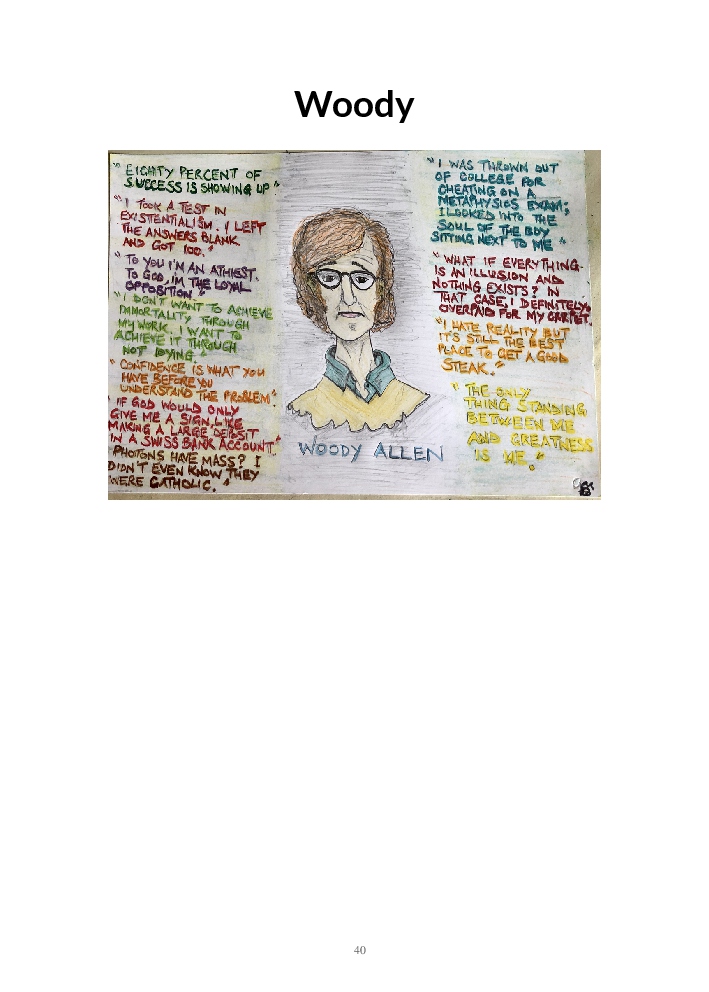 Woody
" EIGHTY PERCENT OF
SUCCESS IS SHOWING UP "
" I TOOK A TEST IN
EXISTENTIALISM. I LEFT
THE ANSWERS BLANK
AND GOT 100."
" TO YOU I'M AN ATHIEST.
TO GOD, I'M THE LOYAL
OPPOSITION "
" I DON'T WANT TO ACHIEVE
IMMORTALITY THROUGH
MY WORK. I WANT TO
ACHIEVE IT THROUGH
NOT DYING. "
" CONFIDENCE IS WHAT YOU
HAVE BEFORE YOU
UNDERSTAND THE PROBLEM "
" IF GOD WOULD ONLY
GIVE ME A SIGN, LIKE
MAKING A LARGE DEPOSIT
IN A SWISS BANK ACCOUNT."
PHOTONS HAVE MASS? I
DIDN'T EVEN KNOW THEY
WERE CATHOLIC. "
WOODY ALLEN
" I WAS THROWN OUT
OF COLLEGE FOR
CHEATING ON A
METAPHYSICS EXAM;
I LOOKED INTO THE
SOUL OF THE BOY
SITTING NEXT TO ME "
" WHAT IF EVERYTHING
IS AN ILLUSION AND
NOTHING EXISTS? IN
THAT CASE, I DEFINITELY
OVERPAID FOR MY CARPET.
" I HATE REALITY BUT
IT'S STILL THE BEST
PLACE TO GET A GOOD
STEAK. "
" THE ONLY
THING STANDING
BETWEEN ME
AND GREATNESS
IS ME. "
40